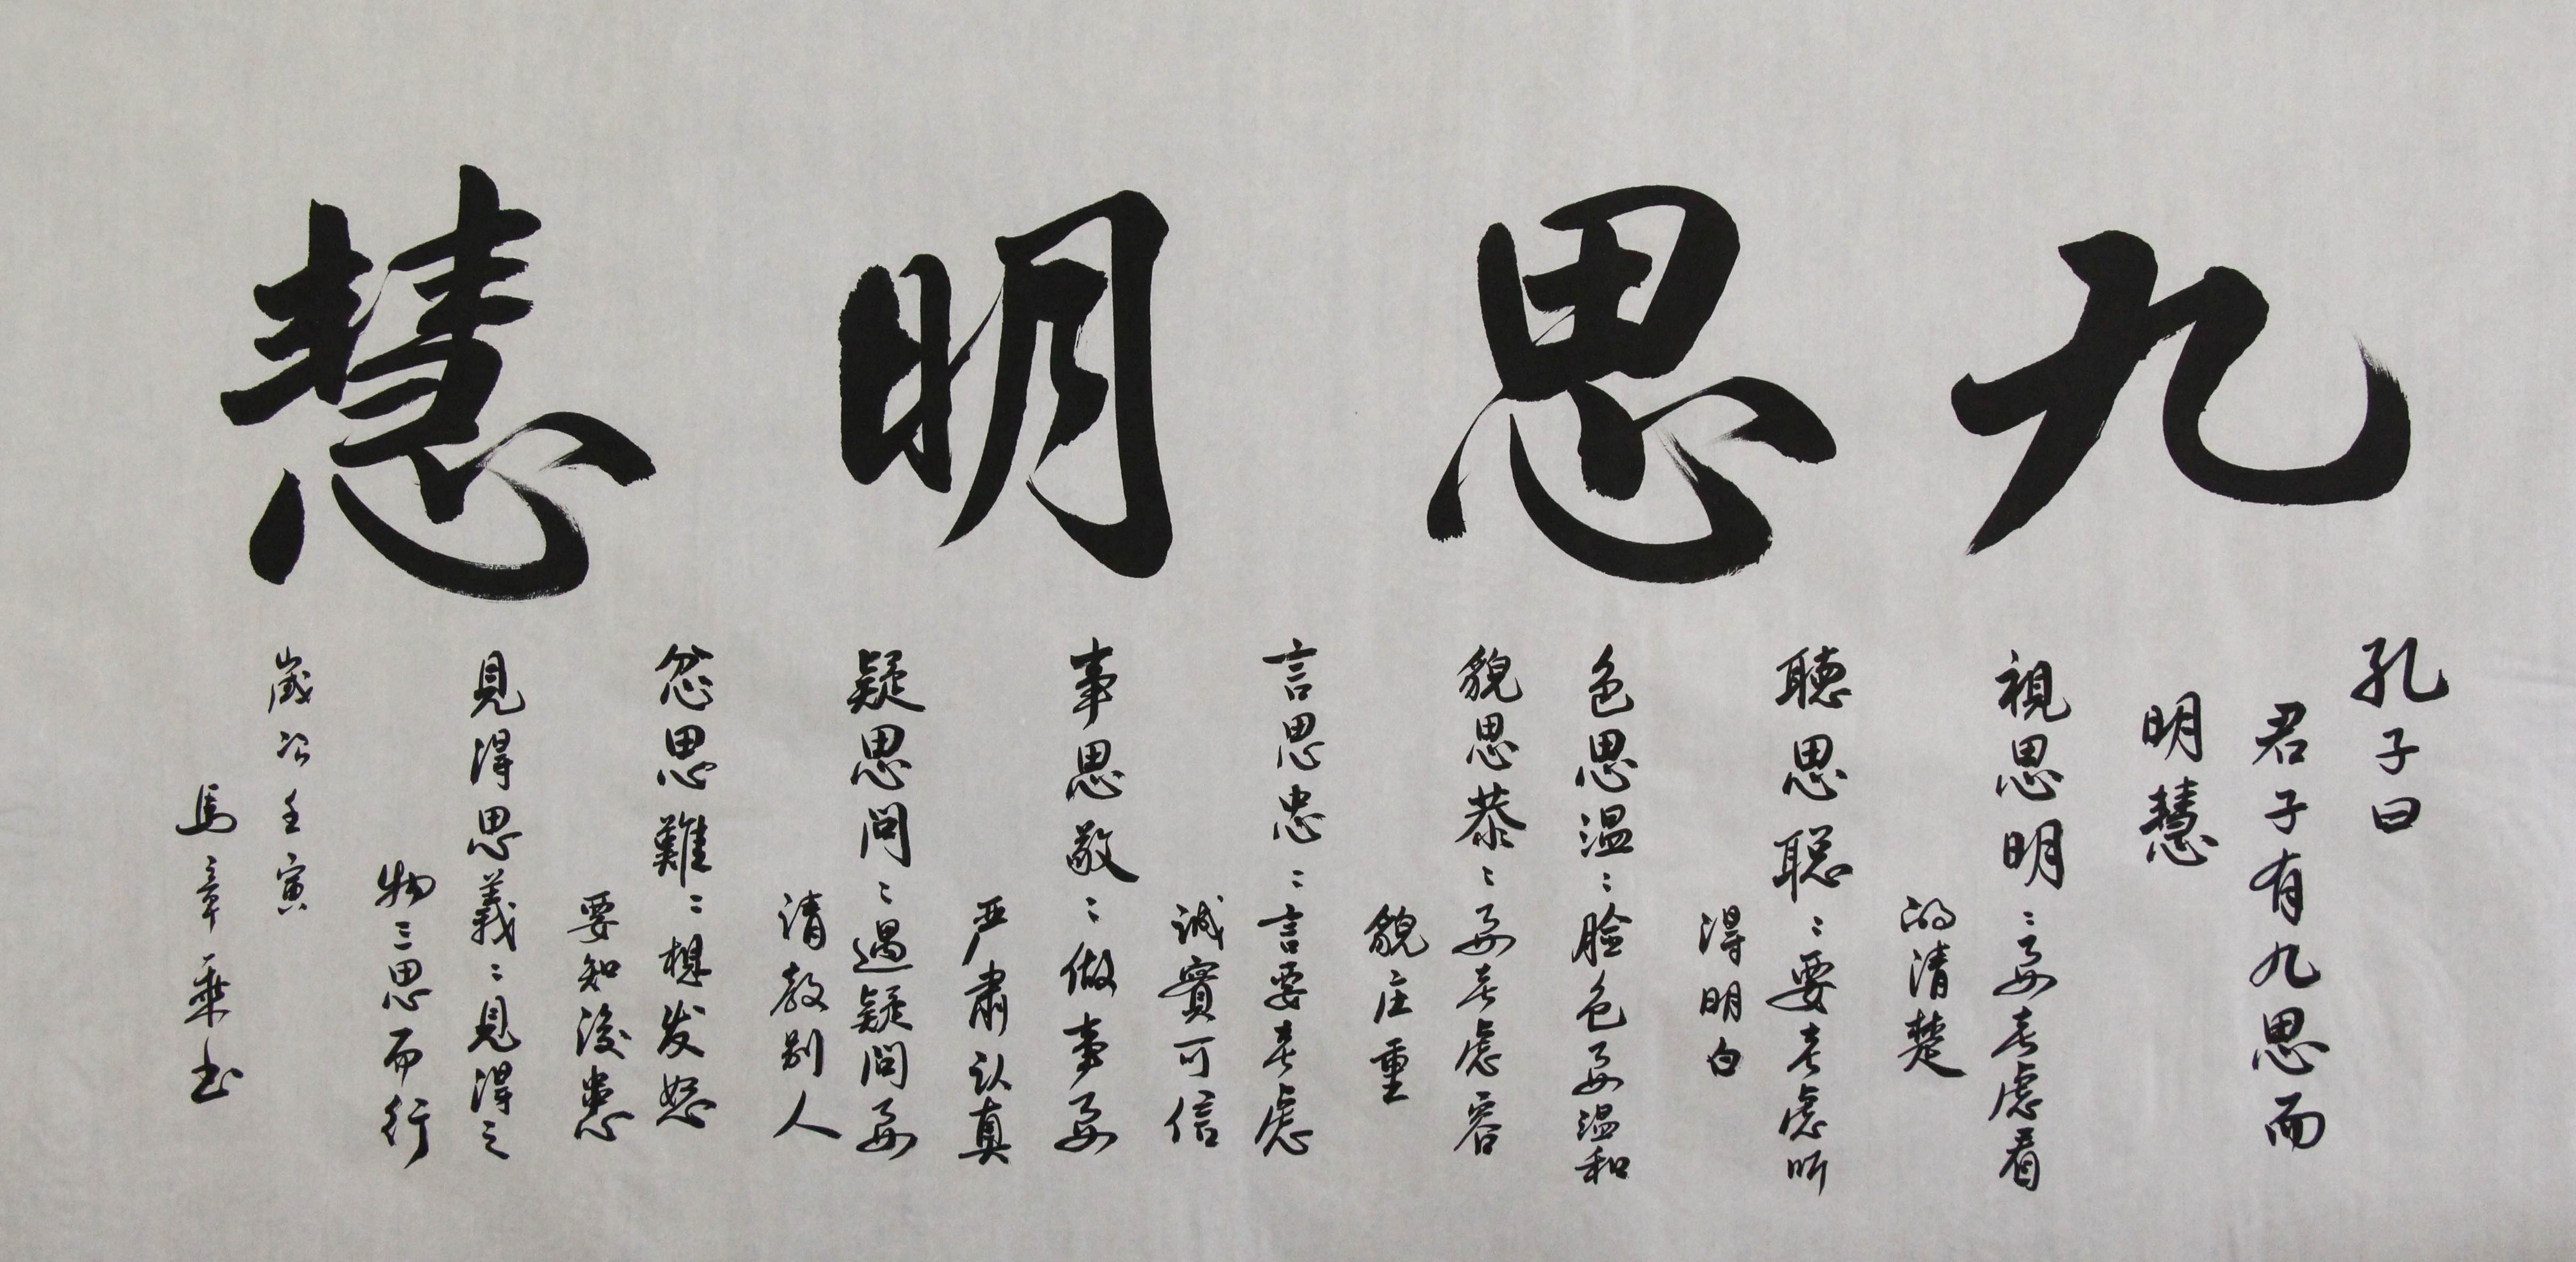 九思明慧
孔子曰
君子有九思而
明慧
視思明：要考慮看
的清楚
聽思聪：要考慮听
得明白
色思温：脸色要温和
貌思恭：要考慮容
貌庄重
言思忠：言要考慮
誠實可信
事思敬：做事要
严肅认真
疑思問：遇疑問要
请教别人
忿思難：想发怒
要知後患
見得思義：見得之
物三思而行
歲次壬寅
馬章乘书